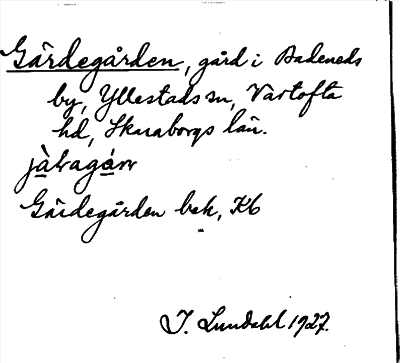 Gärdegården, gård i Badeneds
by, Yllestads sn, Vartofta
hd, Skaraborgs län.
jàragánn
Gärdegården bek, Kb
I. Lundahl 1927.